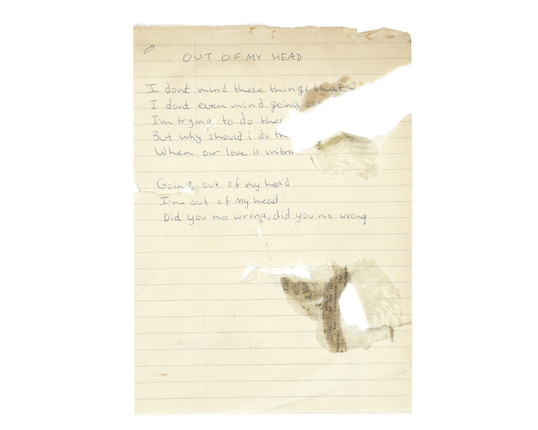 OUT OF MY HEAD
I dont mind these things that
I dont even mind going
I'm trying to do
But why should i do
When our love is
Going out of my head
I'm out of my head
Did you no wrong, did you no wrong